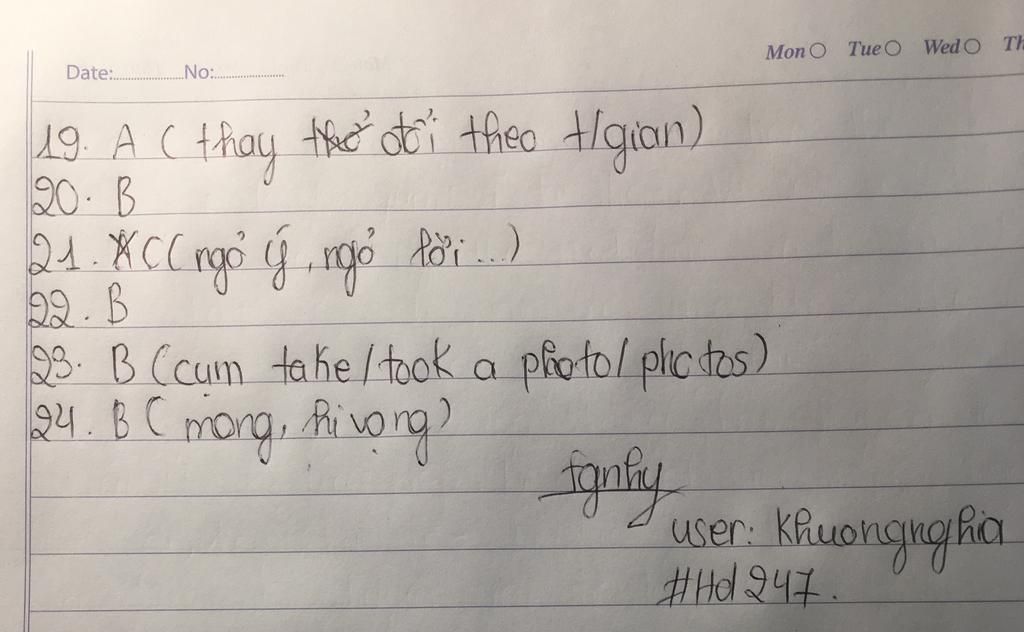 Mon Tue Wed Th
Date: No:
19. A ( thay đổi theo t/gian)
20. B
21. C ( ngỏ ý, ngỏ lời...)
22. B
23. B (cụm take/took a photo/ photos)
24. B ( mong, hi vọng)
user: Khuongnghia
#Hd247.